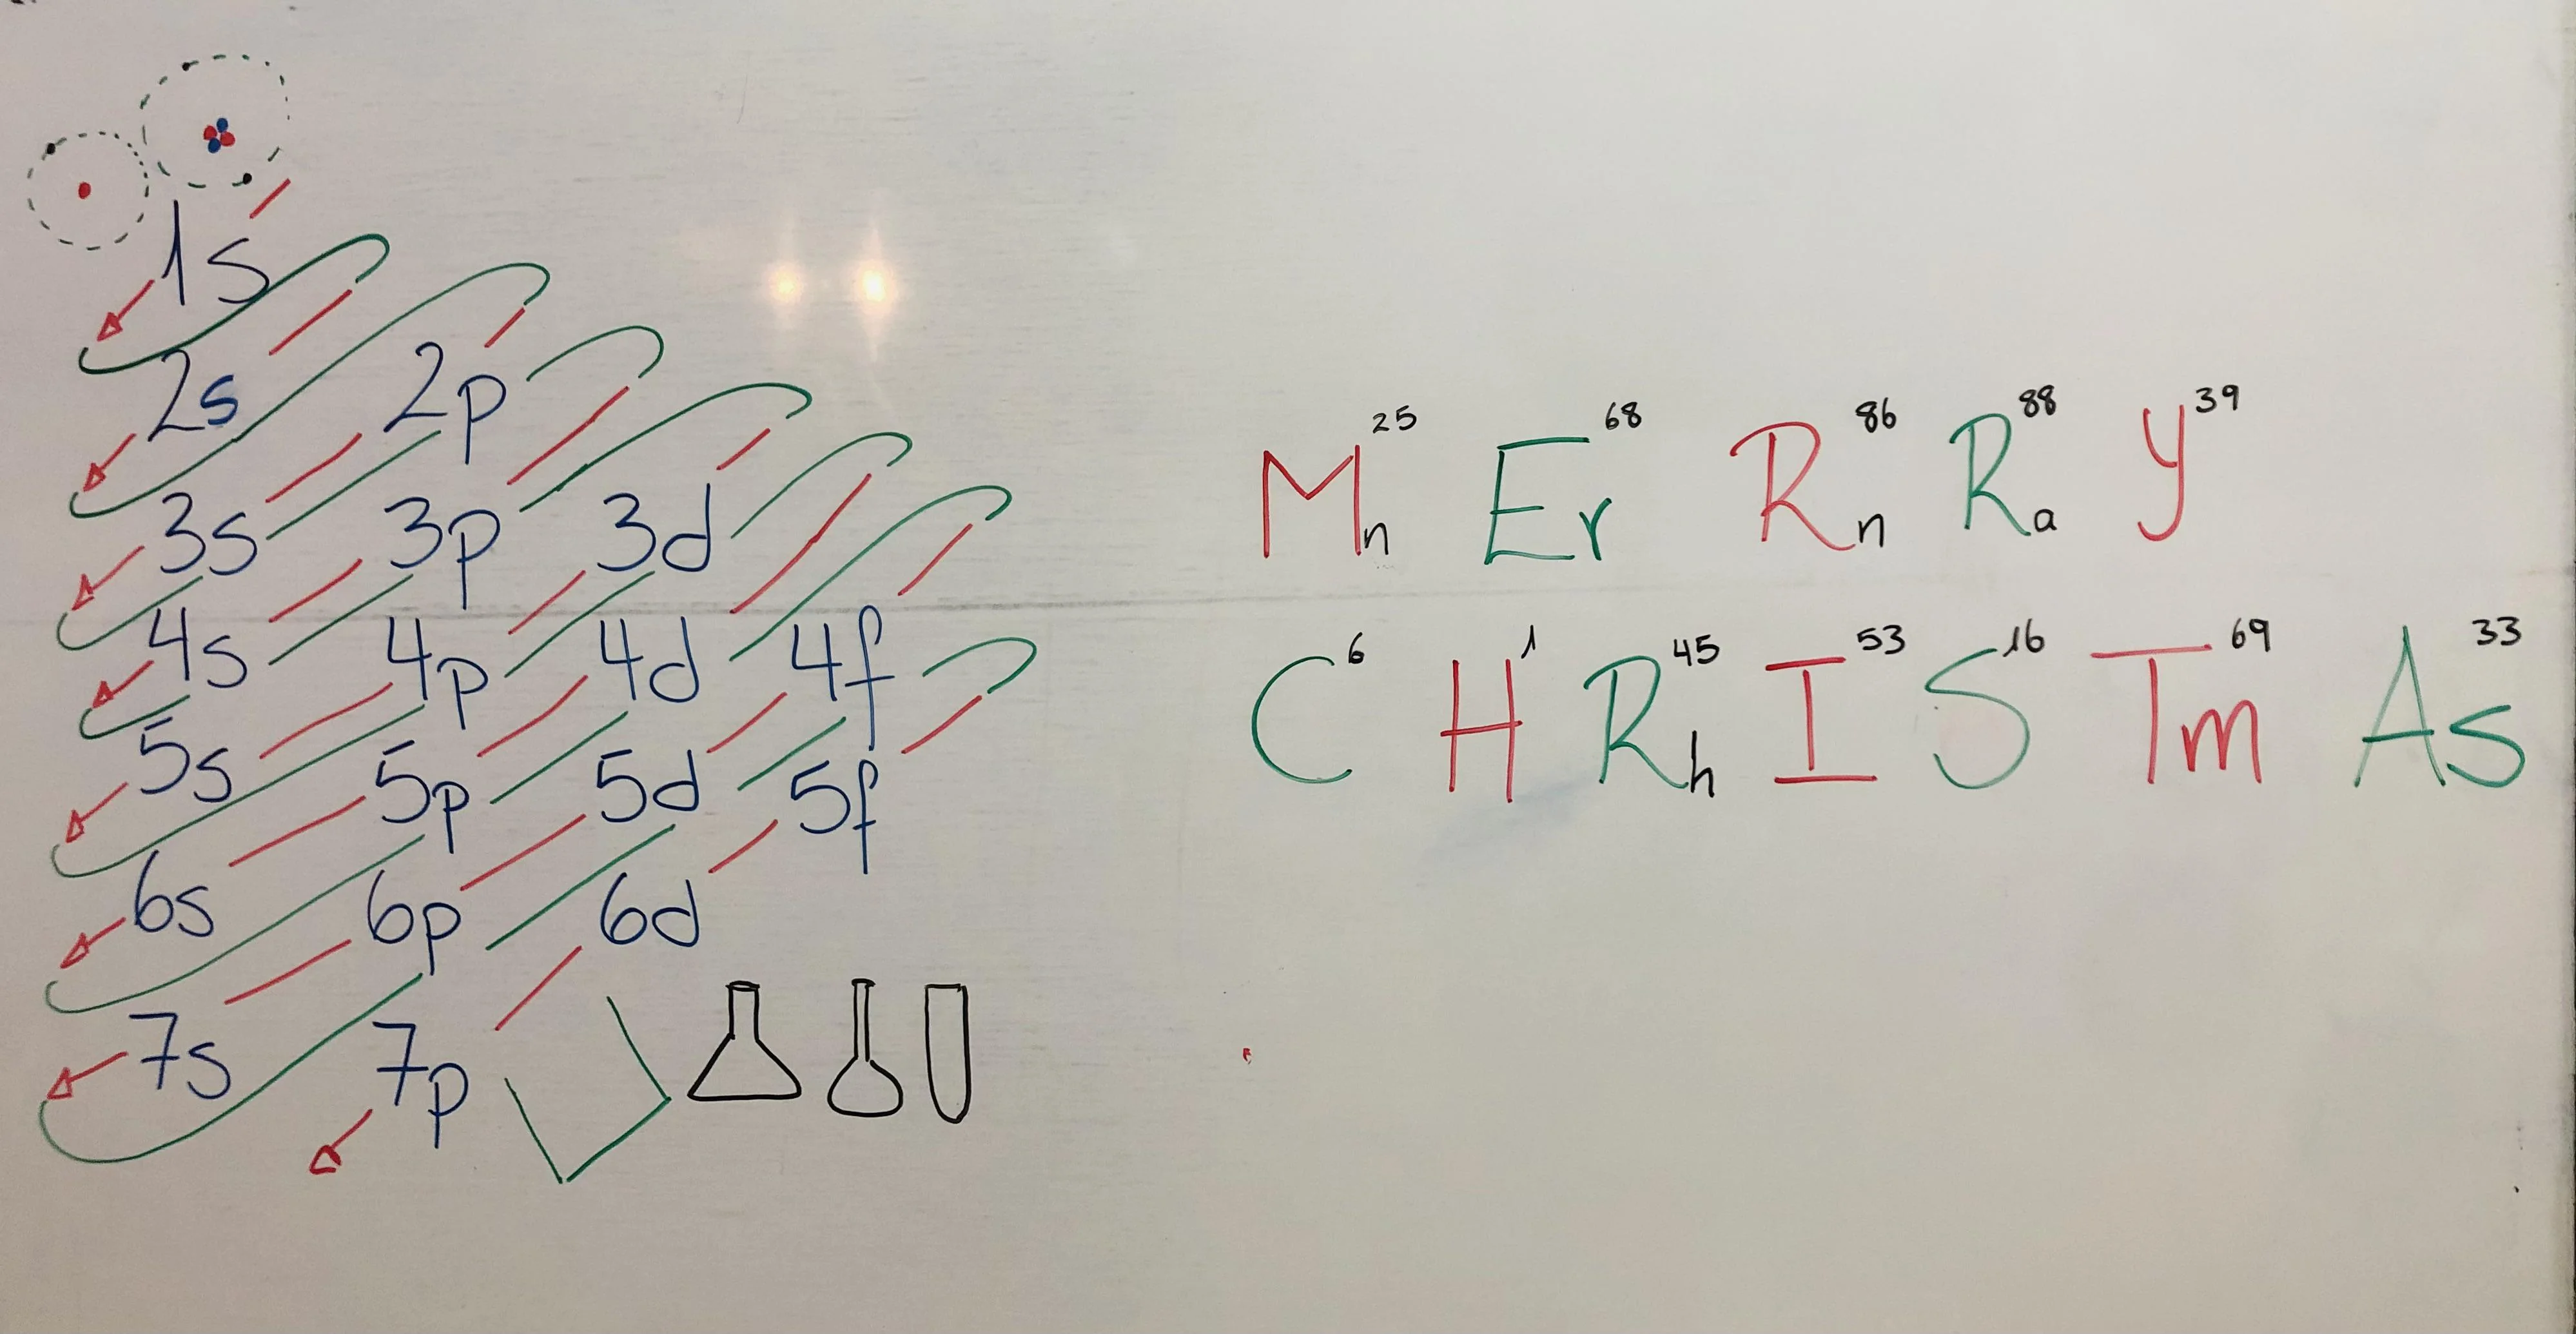 1s
2s 2p
3s 3p 3d
4s 4p 4d 4f
5s 5p 5d 5f
6s 6p 6d
7s 7p
Mn 25 Er 68 Rn 86 Ra 88 Y 39
C 6 H 1 Rh 45 I 53 S 16 Tm 69 As 33